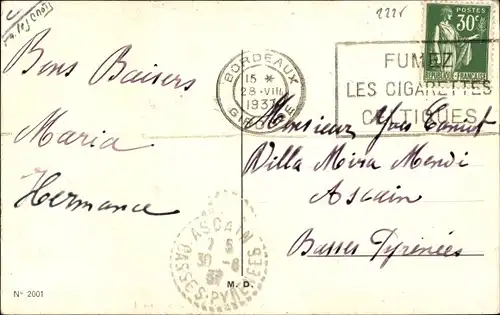 2225
POSTES
30c
REPUBLIQUE FRANÇAISE
BORDEAUX
15 *
28-VIII
1937
GIRONDE
FUMEZ
LES CIGARETTES
CELTIQUES
Bons Baisers
Maria
Hermance
Monsieur Yves Camut
Villa Mira Mendi
Ascain
Basses Pyrénées
ASCAIN
7 5
30-8
37
BASSES-PYRENEES
M. D.
N° 2001